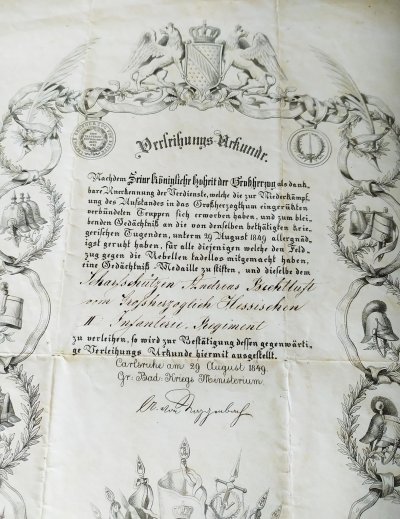 Verleihungs Urkunde.
Nachdem Seine Königliche Hoheit der Großherzog als dank-
bare Anerkennung der Verdienste, welche die zur Niederkämpf-
ung des Aufstandes in das Großherzogthum eingerückten
verbündeten Truppen sich erworben haben, und zum blei-
benden Gedächtniß an die von denselben bethätigten krie-
gerischen Tugenden, unterm 29 August 1849 allergnäd-
igst geruht haben, für alle diejenigen welche den Feld-
zug gegen die Rebellen tadellos mitgemacht haben,
eine Gedächtniß-Medaille zu stiften, und dieselbe dem
Scharfschützen Andreas Bechtluft
vom Großherzoglich Hessischen
II Infanterie-Regiment
zu verleihen, so wird zur Bestätigung dessen gegenwärti-
ge Verleihungs Urkunde hiermit ausgestellt.
Carlsruhe am 29 August 1849.
Gr: Bad: Kriegs Ministerium.
A. von Roggenbach